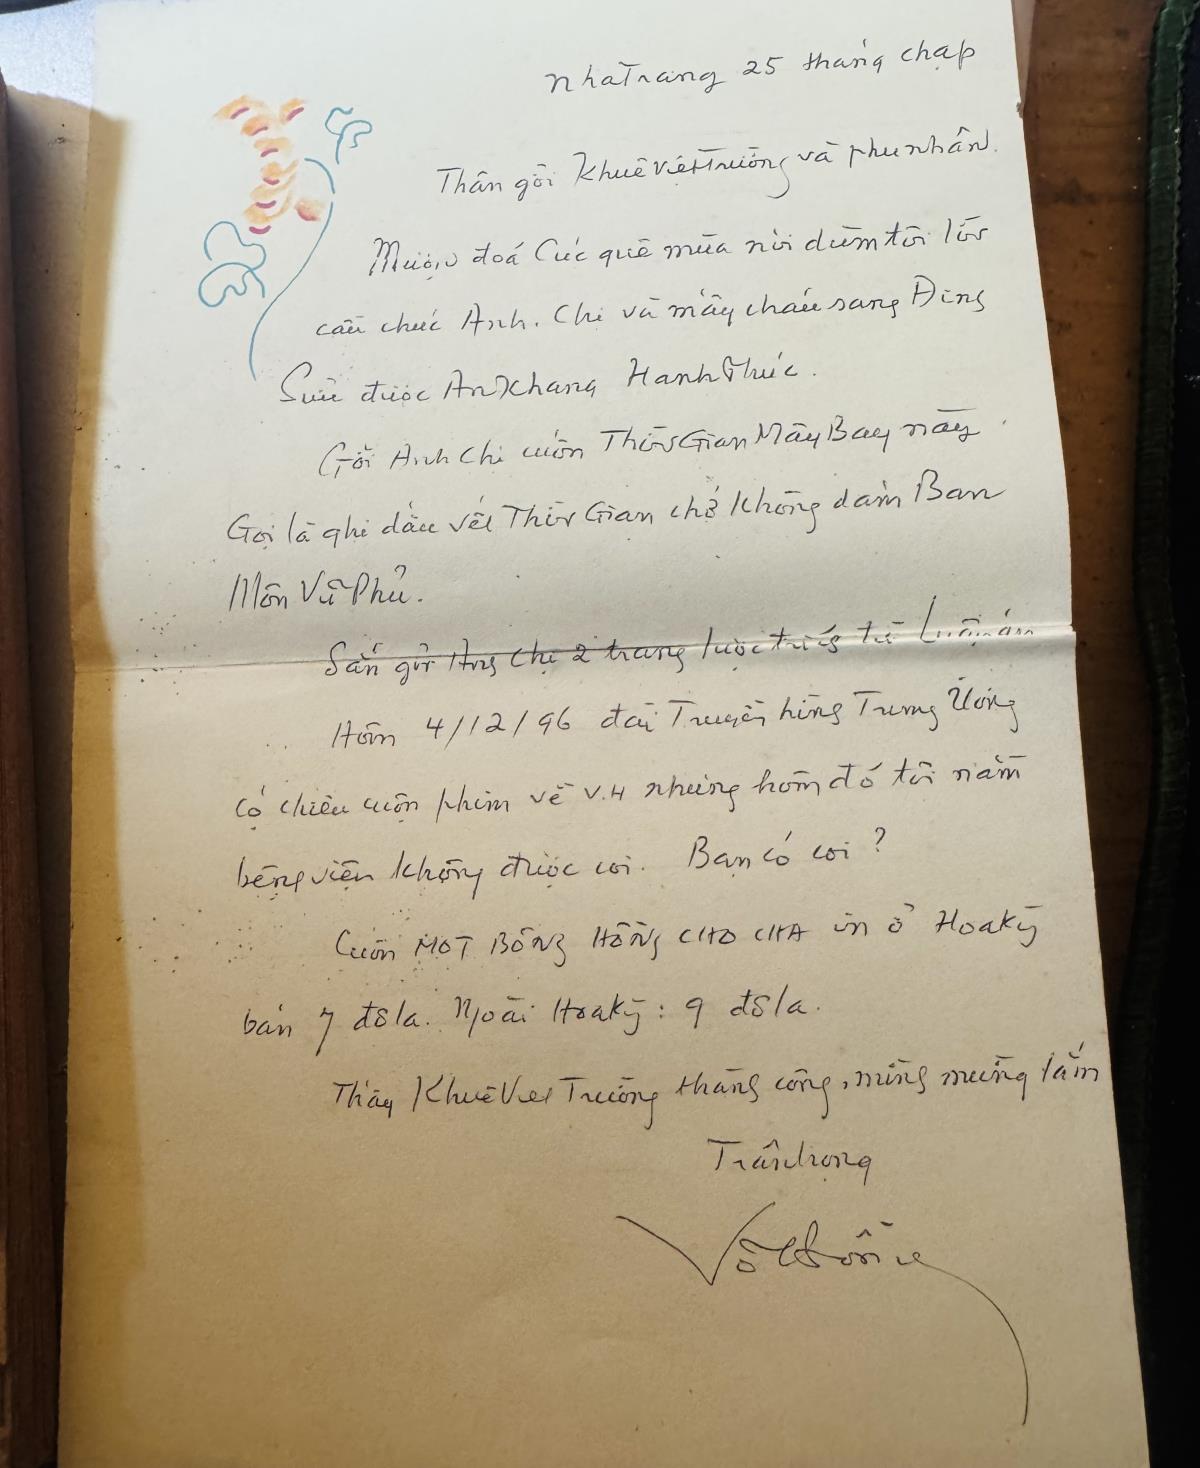 NhaTrang 25 tháng chạp
Thân gởi Khuê Việt Trường và phu nhân.
Mượn đoá Cúc quê mùa nói dùm tôi lời
cầu chúc Anh. Chị và mấy cháu sang Đing
Sửu được An Khang Hạnh Phúc.
Gởi Anh Chị cuốn Thời Gian Mây Bay này.
Gọi là ghi dấu vết Thời Gian chớ không dám Ban
Môn Vũ Phủ.
Sẵn gởi Ang chị 2 trang lược trích từ Luận án
Hôm 4/12/96 đài Truyền hìng Trung Ương
có chiếu cuộn phim về V.H nhưng hôm đó tôi nằm
bệng viện không được coi. Bạn có coi?
Cuốn MỘT BÔNG HỒNG CHO CHA in ở Hoa Kỳ
bán 7 đô la. Ngoài Hoa Kỳ: 9 đô la.
Thấy Khuê Việt Trường thàng công, mừng mừng lắm
Trân trọng
Võ Hồng